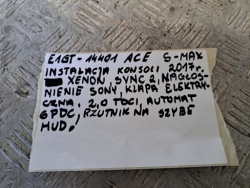 E1GT-14401 ACE S-MAX
INSTALACJA KONSOLI 2017r.
XENON, SYNC 2, NAGŁOŚ-
NIENIE SONY, KLAPA ELEKTRY-
CZNA. 2,0 TDCI, AUTOMAT
6 PDC, RZUTNIK NA SZYBĘ
HUD.